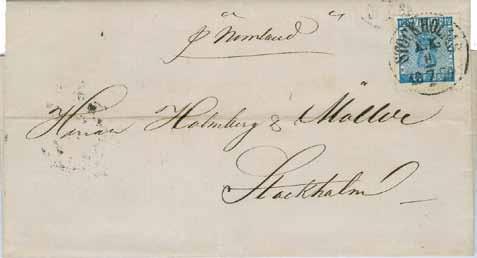 p Norrland
STOCKHOLM
11
7
Herrar Holmberg & Möller
Stockholm